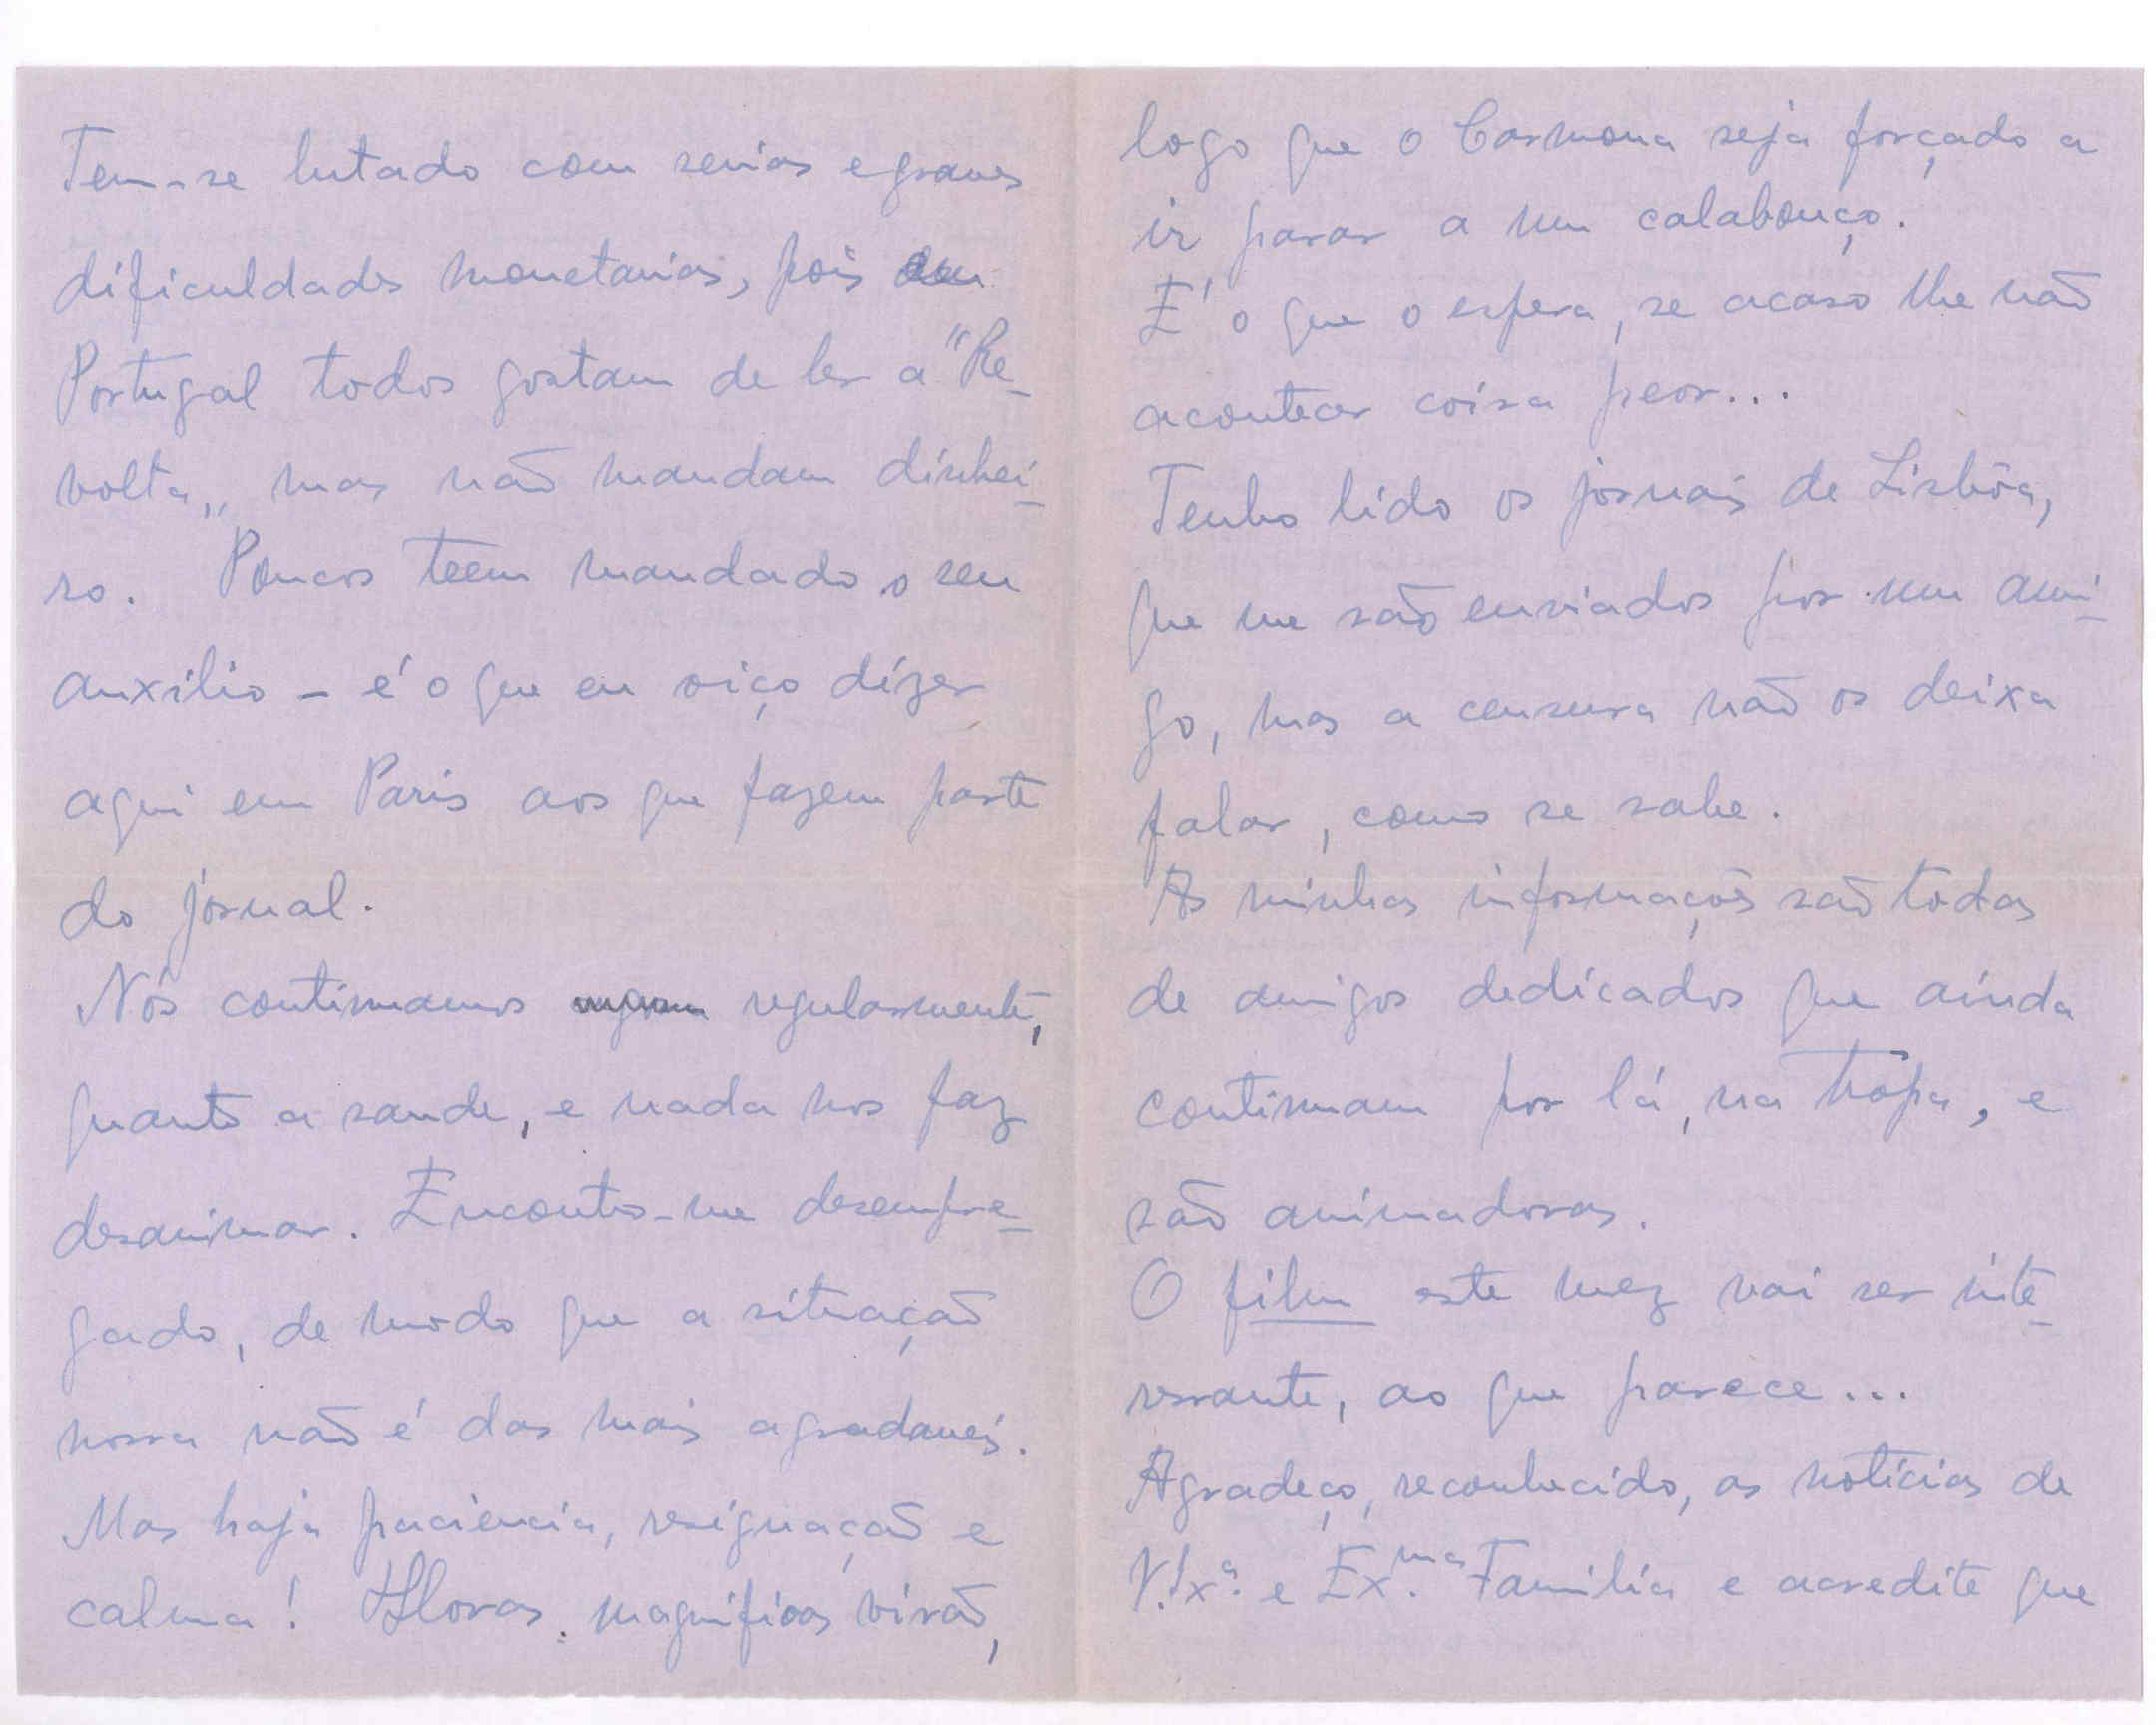 Tem-se lutado com serias e graves
dificuldades monetarias, pois em
Portugal todos gostam de ler a "Re-
volta", mas não mandam dinhei-
ro. Poucos teem mandado o seu
auxilio - é o que eu oiço dizer
aqui em Paris aos que fazem parte
do jornal.
Nós continuamos regularmente,
quanto a saude, e nada nos faz
desanimar. Encontro-me desempre-
gado, de modo que a situação
nossa não é das mais agradaveis.
Mas haja paciencia, resignação e
calma! Horas magnificas virão,
logo que o Carmona seja forçado a
ir parar a um calabouço.
E' o que o espera, se acaso lhe não
acontecer coisa peor...
Tenho lido os jornais de Lisbôa,
que me são enviados por um ami-
go, mas a censura não os deixa
falar, como se sabe.
As minhas informações são todas
de amigos dedicados que ainda
continuam por lá, na tropa, e
são animadoras.
O film este mez vai ser inte-
ressante, ao que parece...
Agradeço, reconhecido, as noticias de
V. Ex.ª e Ex.ma Familia e acredite que